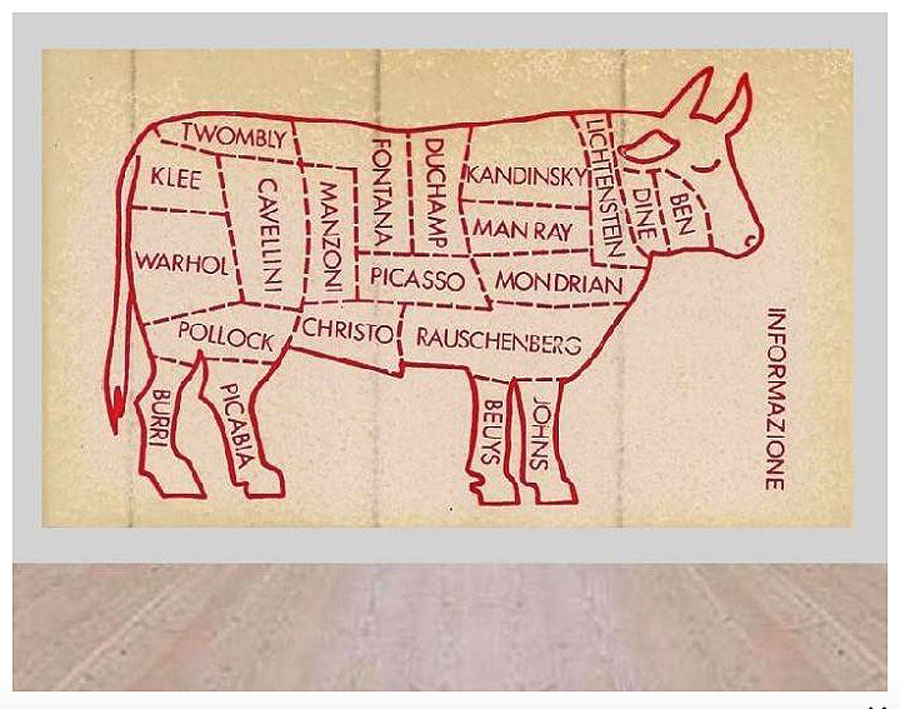 TWOMBLY
KLEE
CAVELLINI
MANZONI
FONTANA
DUCHAMP
KANDINSKY
LICHTENSTEIN
DINE
BEN
MAN RAY
WARHOL
PICASSO
MONDRIAN
POLLOCK
CHRISTO
RAUSCHENBERG
BURRI
PICABIA
BEUYS
JOHNS
INFORMAZIONE